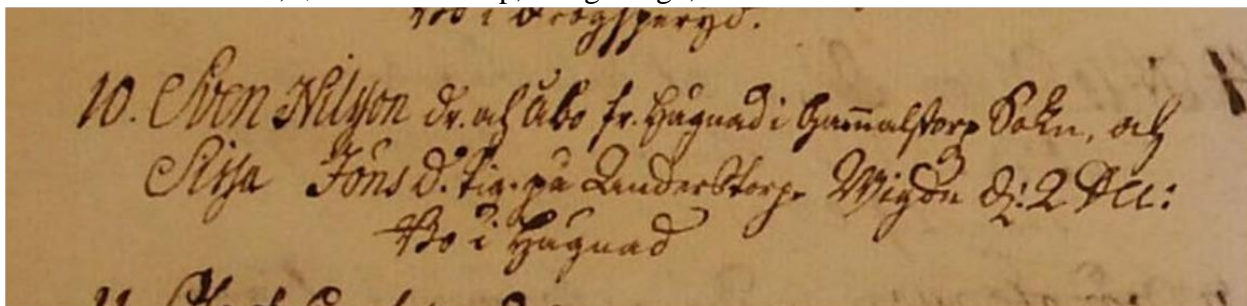 Bo i
10. Sven Nilsson dr. och Åbo fr. Hugnad i Gammalstorp Sokn, och
Sissa Jöns d. pig. på Lunderstorp. Wigde d: 2 Dec:
Bo i Hugnad
11.